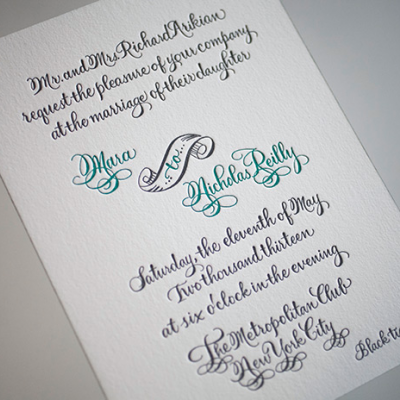 Mr. and Mrs. Richard Arikian
request the pleasure of your company
at the marriage of their daughter
Mara
to
Nicholas Reilly
Saturday, the eleventh of May
Two thousand thirteen
at six o'clock in the evening
The Metropolitan Club
New York City
Black